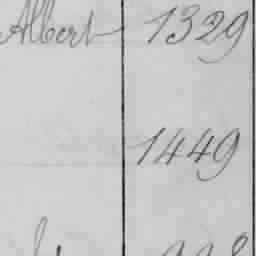 Albert 1329
1449